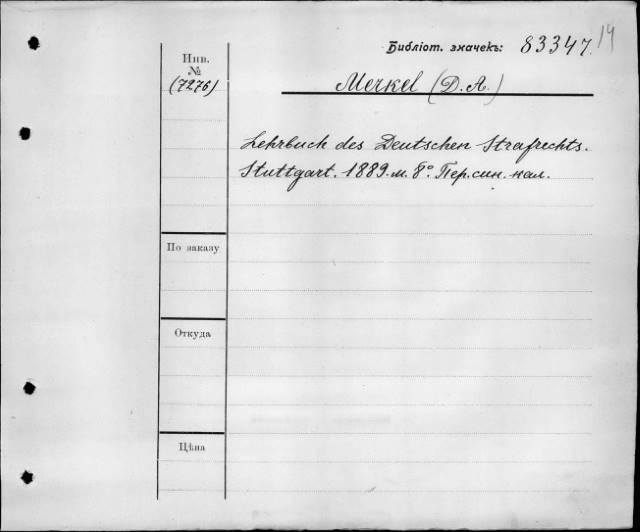 Библіот. значекъ: 83347. 14
Инв.
№
(7276)
Merkel (D. A.)
Lehrbuch des Deutschen Strafrechts.
Stuttgart. 1889. м. 8° Пер. син. кал.
По заказу
Откуда
Цѣна